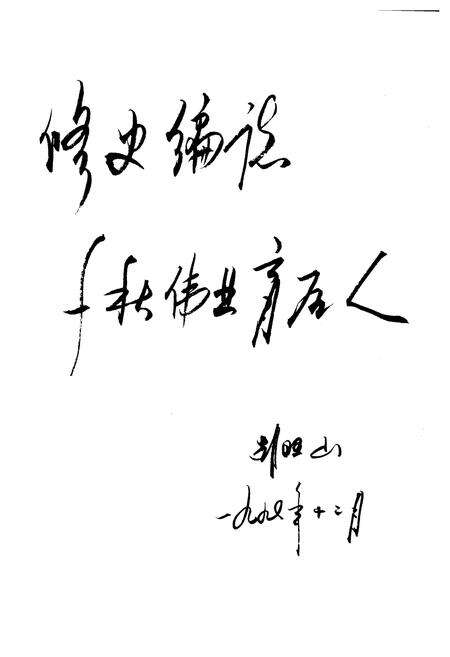 修史编志
千秋伟业育后人
山
一九九七年十二月